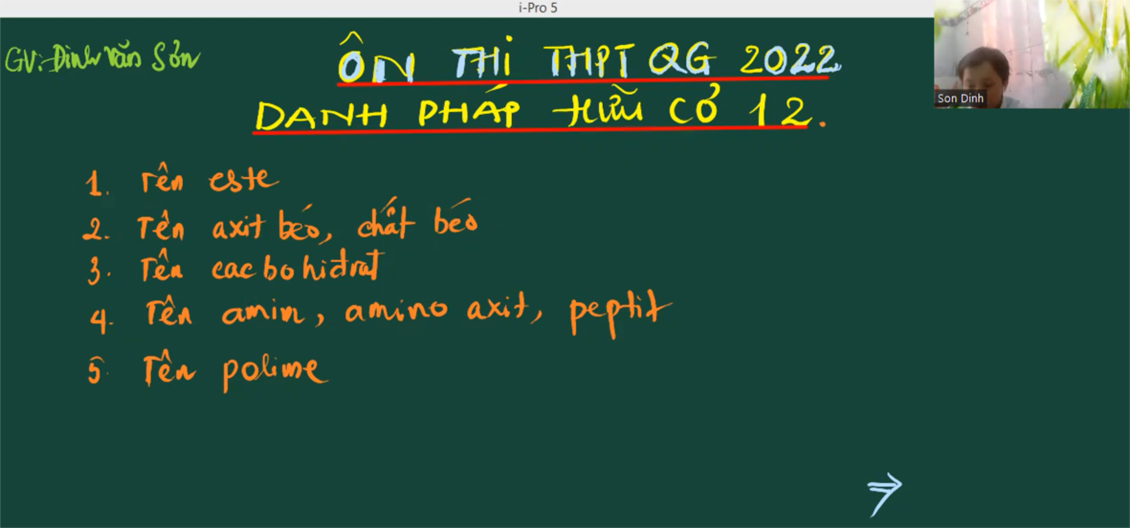 i-Pro 5
GV: Đinh Văn Sơn
ÔN THI THPT QG 2022
DANH PHÁP HỮU CƠ 12.
Son Dinh
1. Tên este
2. Tên axit béo, chất béo
3. Tên cacbohidrat
4. Tên amin, amino axit, peptit
5 Tên polime